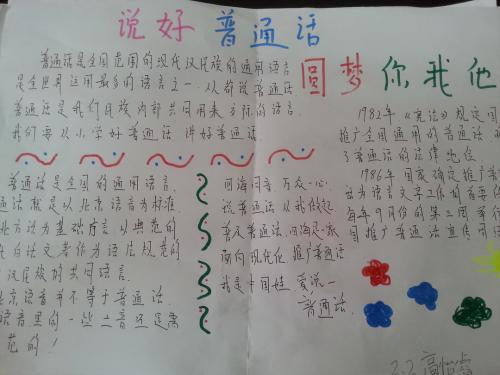 说好普通话
圆梦你我他
普通话是全国范围的现代汉民族的通用语言
是全世界运用最多的语言之一.从都说普通话
普通话是我们民族内部共同用来交际的语言.
我们要从小学好普通话 讲好普通话.
1982年《宪法》规定国
推广全国通用的普通话
了普通话的法律地位.
1986年国家确定推广普
话为语言文字工作的首要
每年9月份的第三周
国推广普通话宣传周
普通话是全国的通用语言.
通话就是以北京语音为标准
北方话为基础方言以典范的
代白话文著作为语法规范的
汉民族的共同语言.
京语音并不等于普通话.
语音里的一些土音还是需
范的!
四海同音 万众一心.
说普通话 从我做起.
普及普通话 四海是一家
面向现代化 推广普通话
我是中国娃 爱说一
普通话.
2.2 高怡